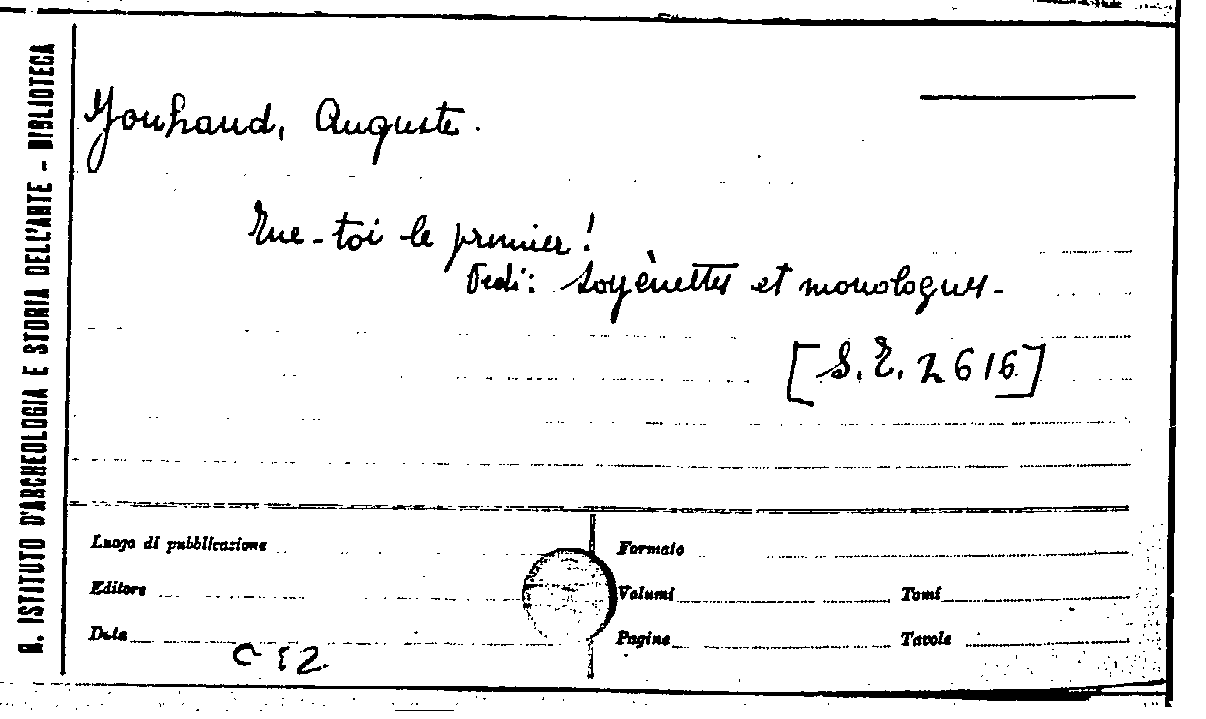 R. ISTITUTO D'ARCHEOLOGIA E STORIA DELL'ARTE - BIBLIOTECA
Jouhaud, Auguste.
Tue-toi le premier!
Vedi: Soyènettes et monologues -
[S. E. 2616]
Luogo di pubblicazione
Formato
Editore
Volumi
Tomi
Data
Pagine
Tavole